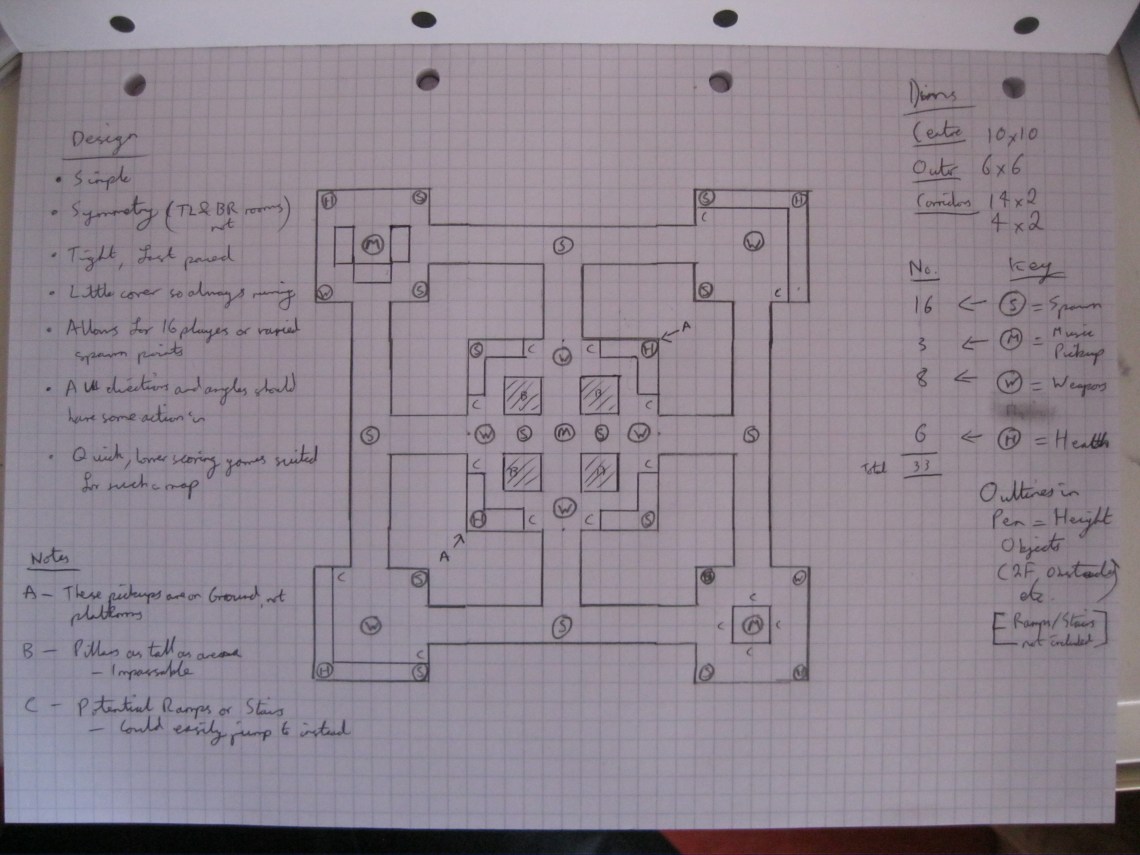 Design
• Simple
• Symmetry (TL & BR rooms)
not
• Tight, fast paced
• Little cover so always
• Allows for 16 players or varied
spawn points
• All directions and angles should
have some action in
• Quick, lower scoring games suited
for such a map
Notes
A – These pickups are on Ground, not
platforms
B – Pillars as tall as
– Impassable
C – Potential Ramps or Stairs
– Could easily jump to instead
H S
M
W S
S
S H
C
W
S C
A
S C W C H
C B B C
S W S M S W S
C B C
H C W C S
A
C S
W
C
H S
S
W
C
C M C
C
S
Dims
Centre 10x10
Outer 6x6
Corridors 14x2
4x2
No. Key
16 ← S = Spawn
3 ← M = Music
Pickup
8 ← W = Weapon
6 ← H = Health
Total 33
Outlines in
Pen = Height
Objects
(2F, obstacles
etc.)
[Ramps/Stairs
not included]